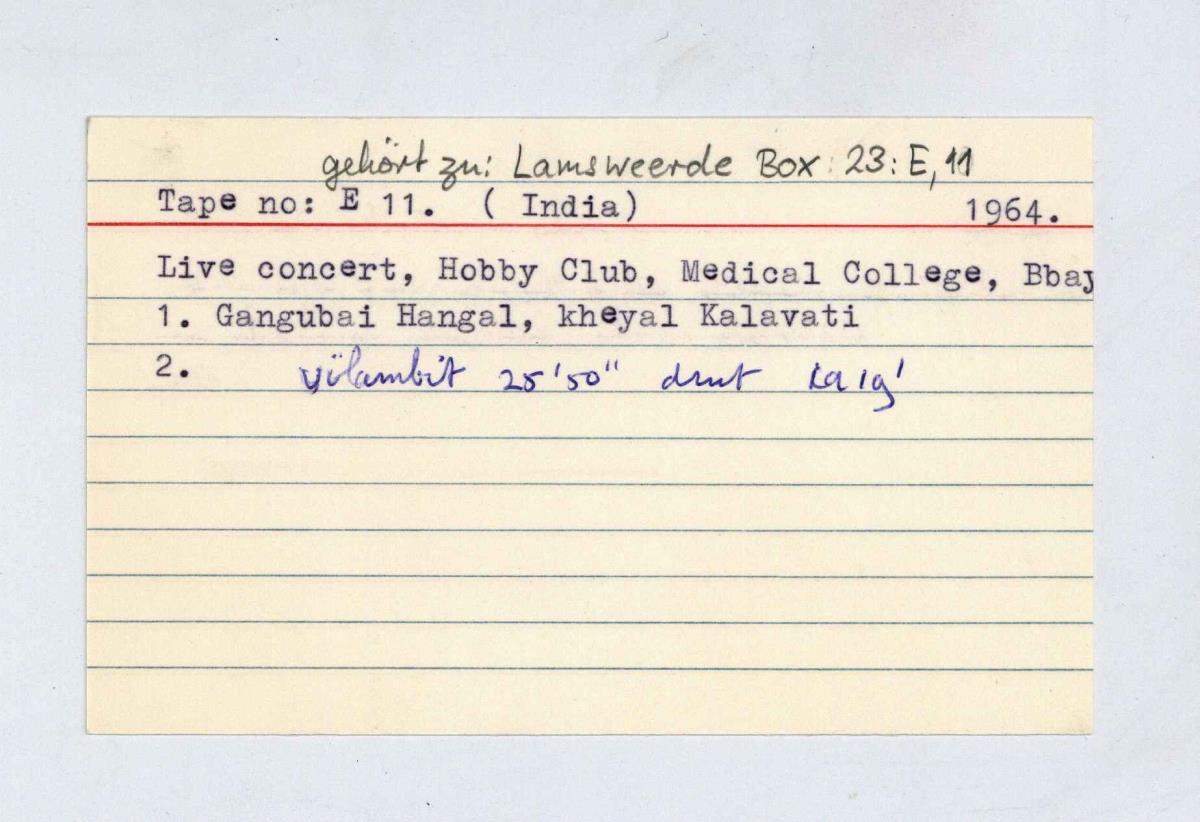 gehört zu: Lamsweerde Box: 23: E, 11
Tape no: E 11. ( India) 1964.
Live concert, Hobby Club, Medical College, Bbay
1. Gangubai Hangal, kheyal Kalavati
2. vilambit 25'50" drut